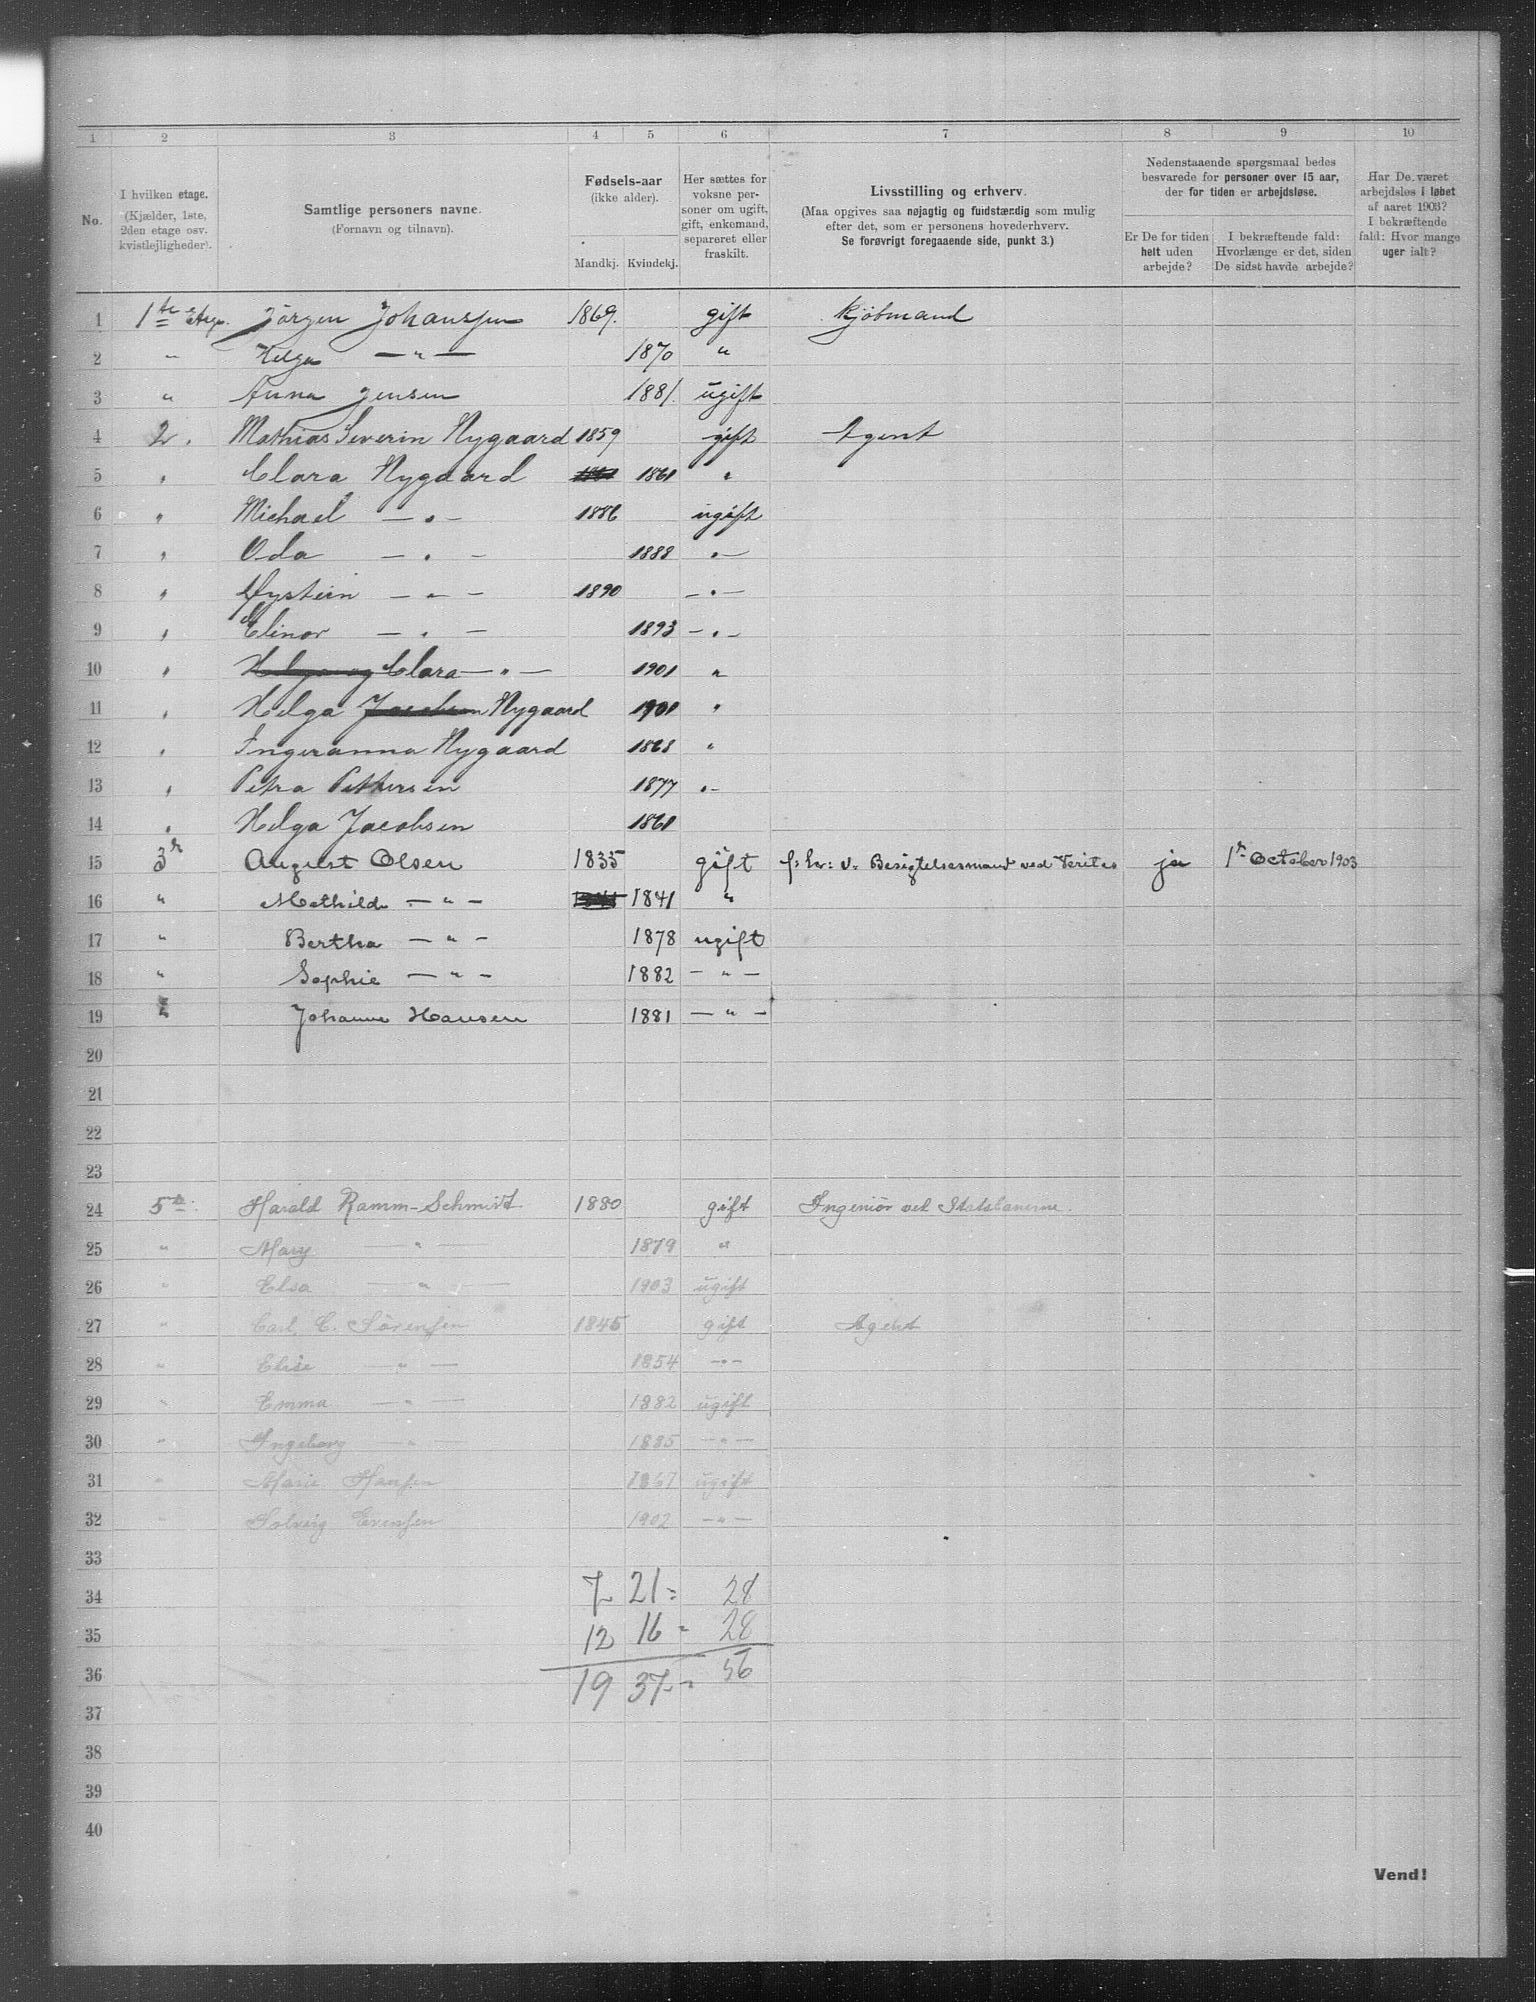 1 2 3 4 5 6 7 8 9 10
No.
I hvilken etage. (Kjælder, 1ste, 2den etage osv. kvistlejligheder).
Samtlige personers navne. (Fornavn og tilnavn).
Fødsels-aar (ikke alder). Mandkj. Kvindekj.
Her sættes for voksne personer om ugift, gift, enkemand, separeret eller fraskilt.
Livsstilling og erhverv. (Maa opgives saa nøjagtig og fuldstændig som mulig efter det, som er personens hovederhverv. Se forøvrigt foregaaende side, punkt 3.)
Nedenstaaende spørgsmaal bedes besvarede for personer over 15 aar, der for tiden er arbejdsløse.
Er De for tiden helt uden arbejde?
I bekræftende fald: Hvorlænge er det, siden De sidst havde arbejde?
Har De været arbejdsløs i løbet af aaret 1903? I bekræftende fald: Hvor mange uger ialt?
1 1ste Etage. Jörgen Johanssen 1869. gift Kjöbmand
2 " Helga — " — 1870 "
3 " Anna Jensen 1881. ugift
4 2. Mathias Severin Nygaard 1859 gift Agent
5 " Clara Nygaard 1861 "
6 " Michael — " — 1886 ugift
7 " Oda — " — 1888 " —
8 " Øystein — " — 1890 — " —
9 " Elinor — " — 1893 — " —
10 " Helga og Clara — " — 1901 "
11 " Helga Jacobsen Nygaard 1901 "
12 " Ingeranna Nygaard 1868 "
13 " Petra Pettersen 1877 " —
14 " Helga Jacobsen 1861
15 3die August Olsen 1835 gift f: hv: v. Besigtelsesmand ved Veritas ja 1ste October 1903
16 " Mathilde — " — 1841 "
17 " Bertha — " — 1878 ugift
18 " Sophie — " — 1882 — " —
19 " Johanne Hansen 1881 — " —
20
21
22
23
24 5te Harald Ramm-Schmidt 1880 gift Ingeniør ved Statsbanerne.
25 " Mary " — 1879 "
26 " Elsa — " — 1903 ugift
27 " Carl C. Sörensen 1845 gift Agent
28 " Elise — " — 1854 — " —
29 " Emma — " — 1882 ugift
30 " Ingeborg — " — 1885 — " —
31 " Marie Hansen 1867 ugift
32 " Solveig Evensen 1902 — " —
33
34 7 21 = 28
35 12 16 = 28
36 19 37 = 56
37
38
39
40
Vend!